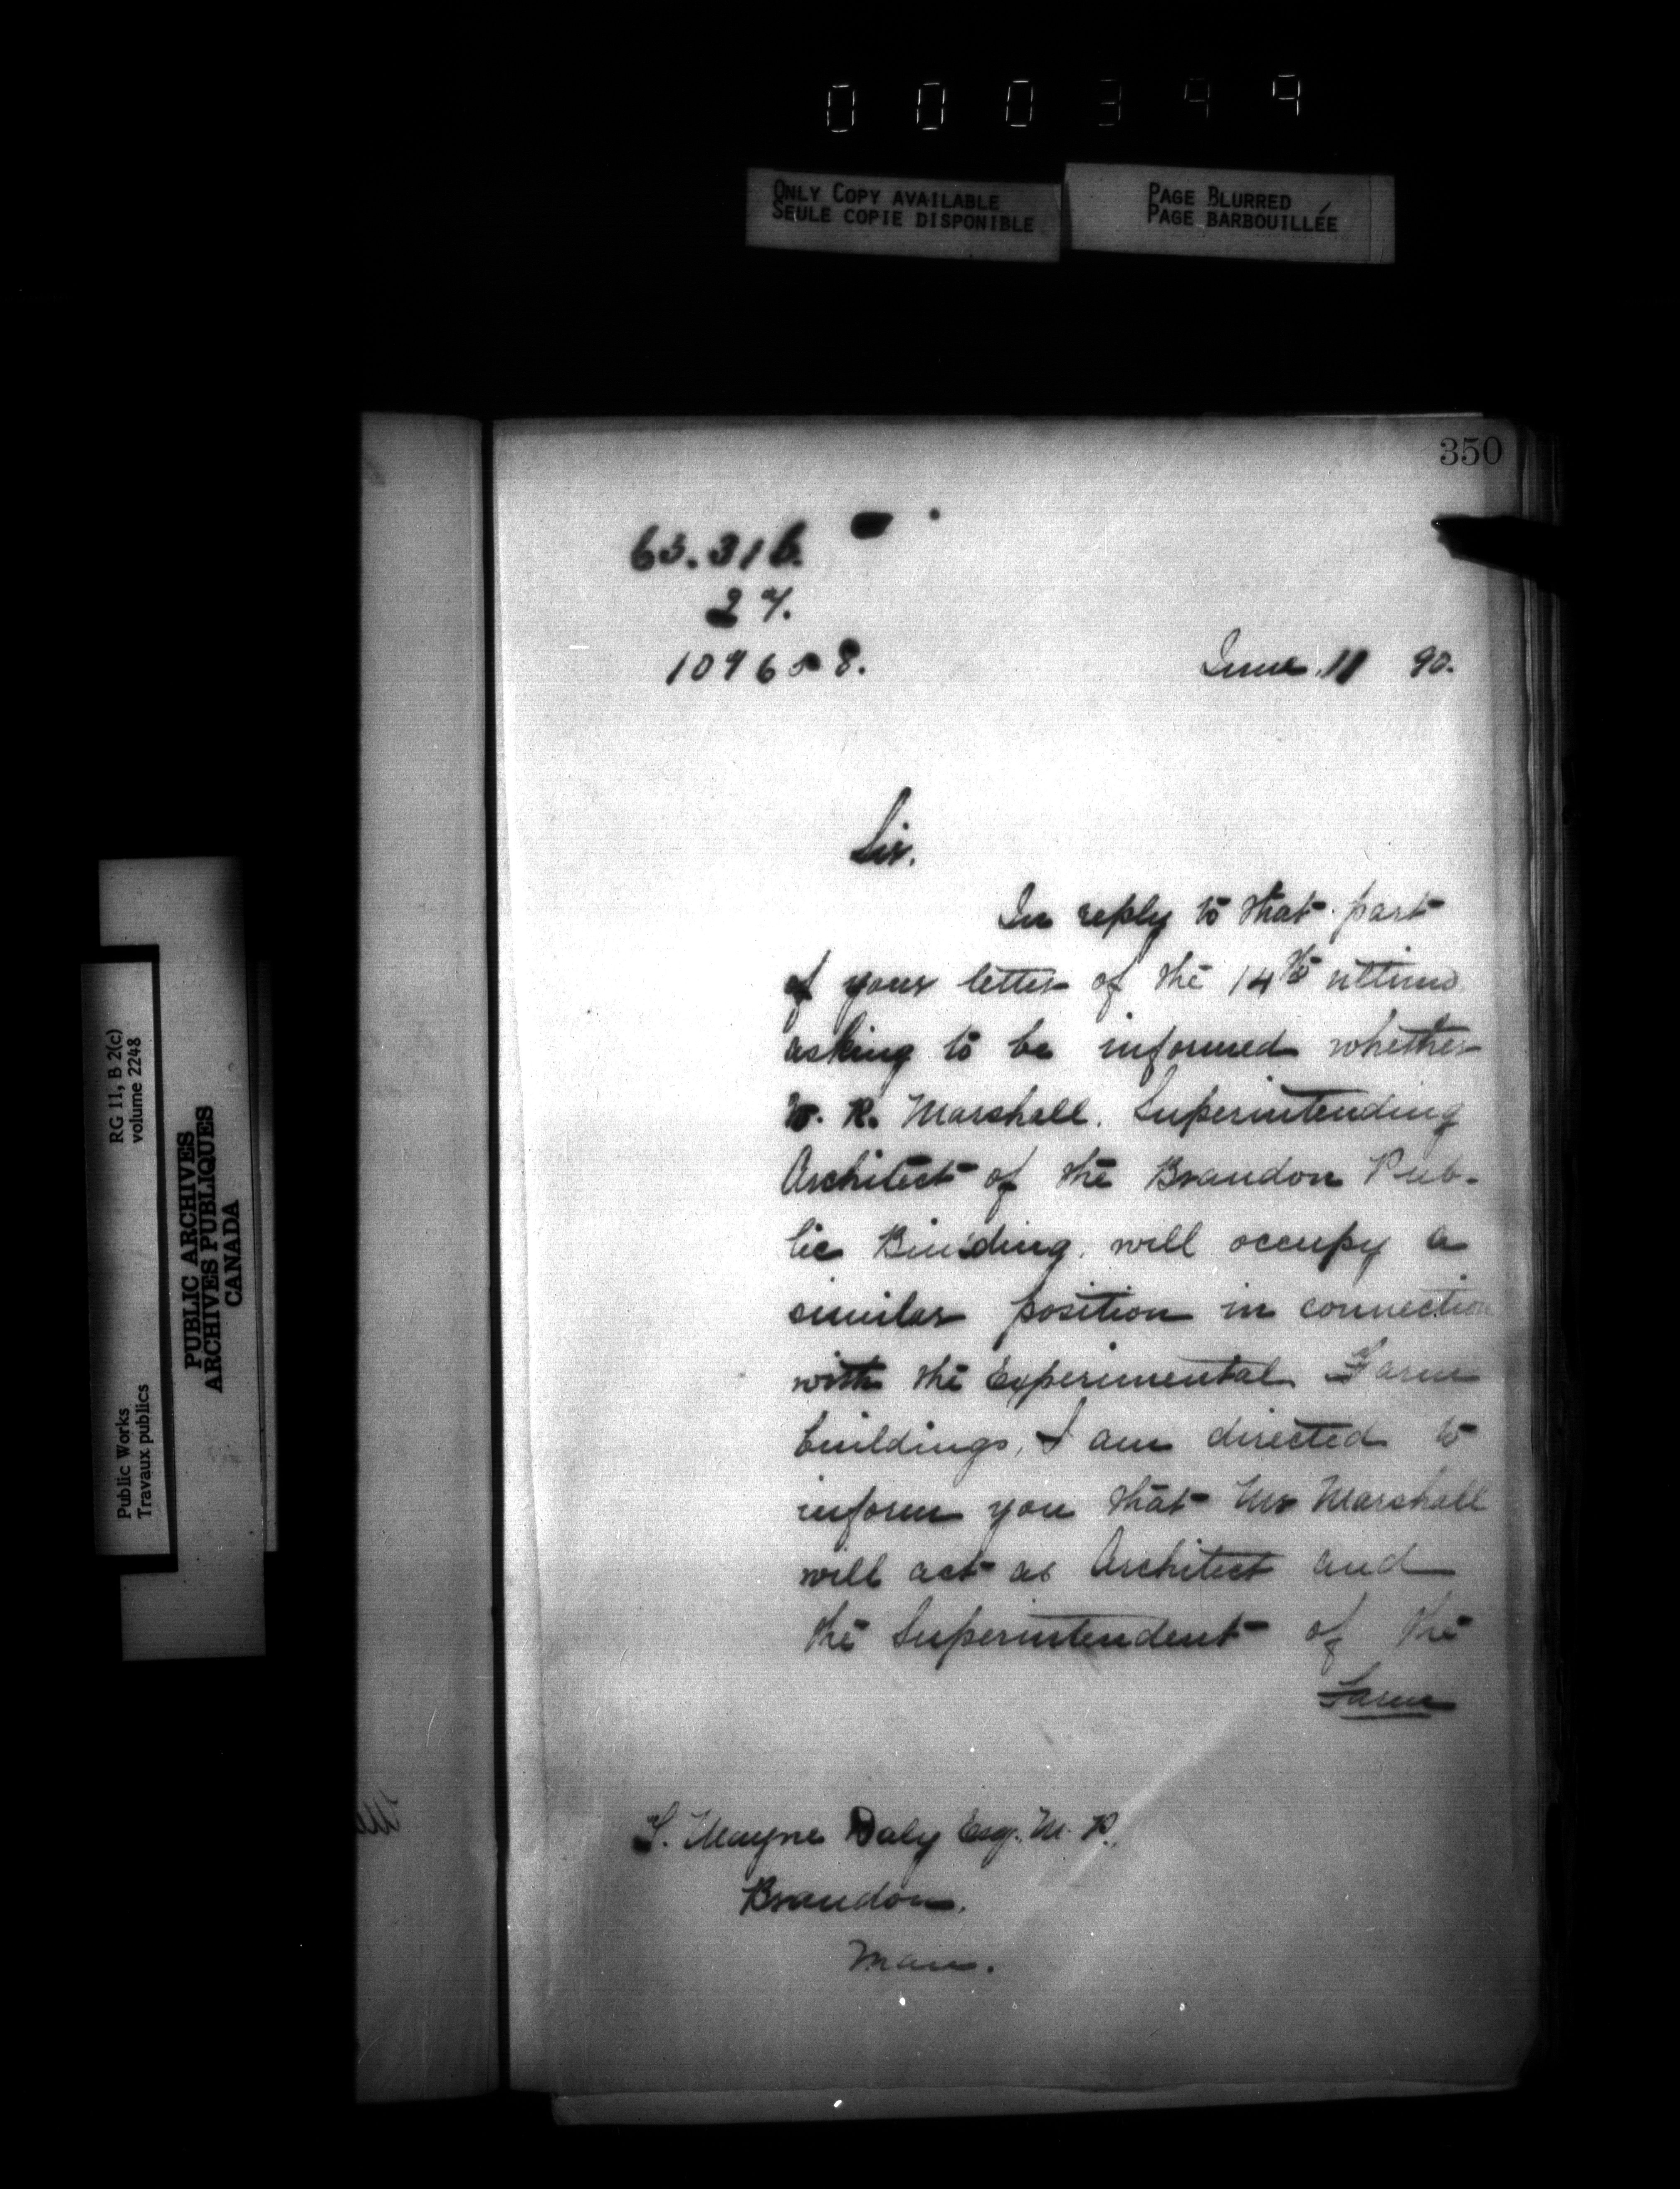 000349
ONLY COPY AVAILABLE
SEULE COPIE DISPONIBLE
PAGE BLURRED
PAGE BARBOUILLÉE
350
65.316.
27.
109658.
June 11 90.
Sir.
In reply to that part
of your letter of the 14th ultimo
asking to be informed whether
W. R. Marshall. Superintending
Architect of the Brandon Pub-
lic Building. will occupy a
similar position in connection
with the Experimental Farm
buildings, I am directed to
inform you that Mr Marshall
will act as Architect and
the Superintendent of the
Farm
T. Mayne Daly Esq. M. P.,
Brandon.
Man.
RG 11, B 2(c)
volume 2248
Public Works
Travaux publics
PUBLIC ARCHIVES
ARCHIVES PUBLIQUES
CANADA